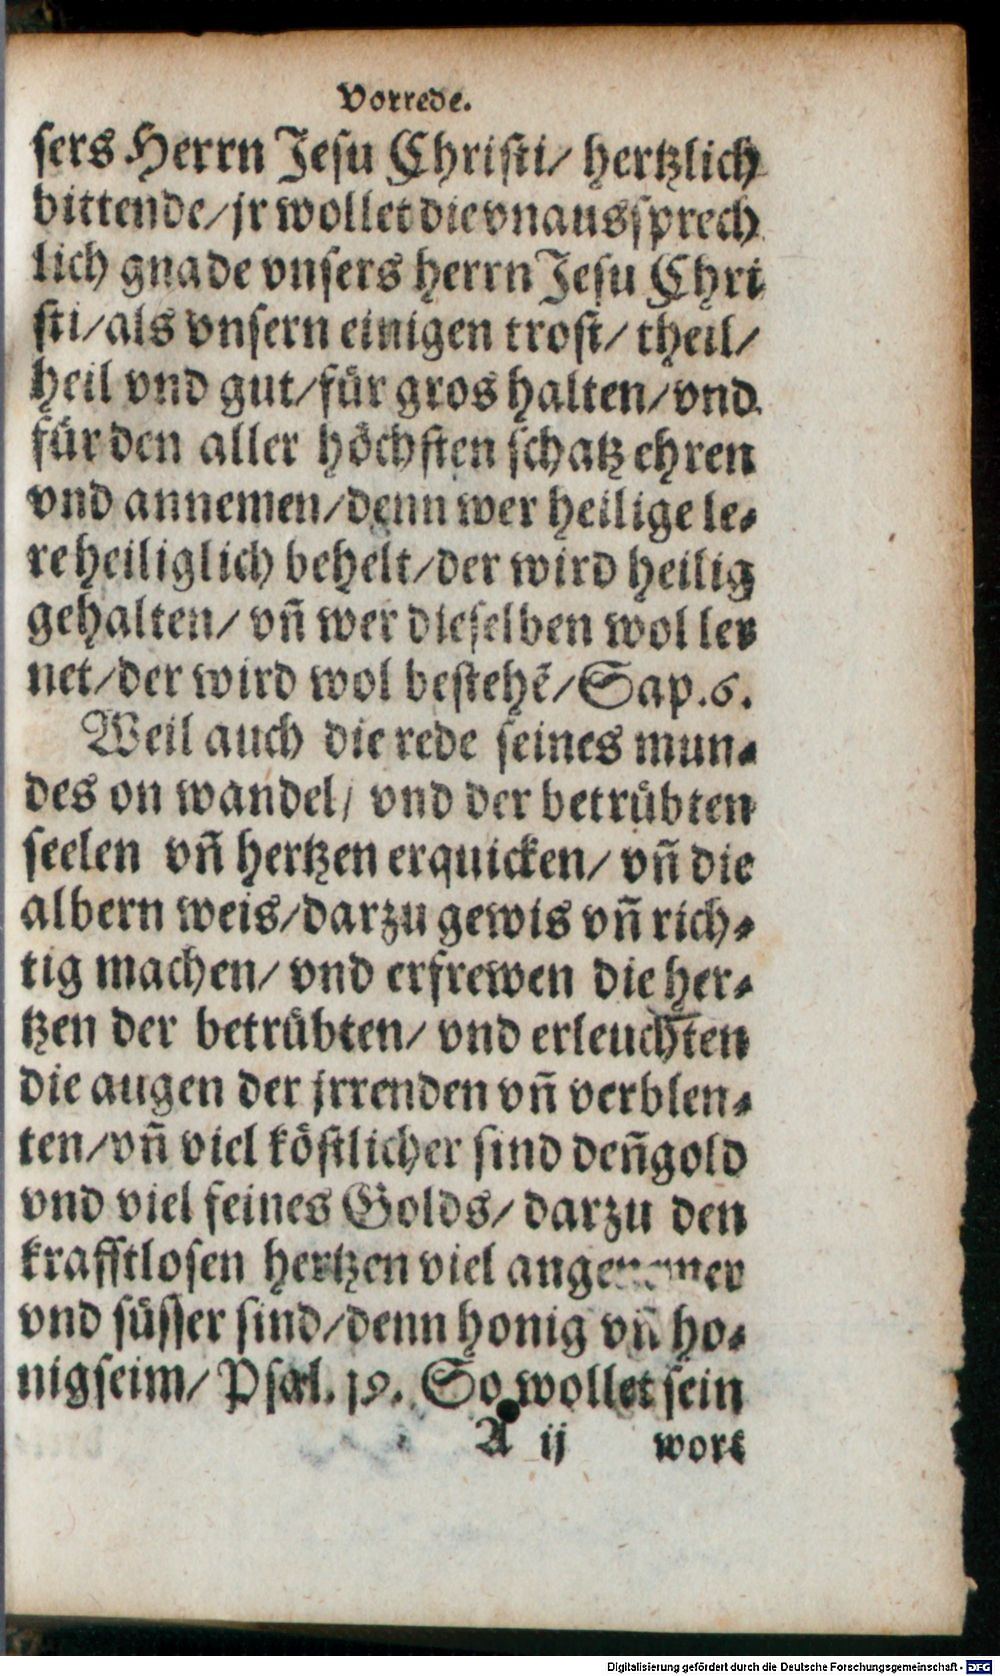 Vorrede.
sers Herrn Jesu Christi/ hertzlich
bittende/jr wollet die vnaussprech
lich gnade vnsers herrn Jesu Chri
sti/als vnsern einigen trost/ theil/
heil vnd gut/für gros halten/vnd
für den aller höchsten schatz ehren
vnd annemen/denn wer heilige le⸗
re heiliglich behelt/der wird heilig
gehalten/ vñ wer dieselben wol ler
net/der wird wol bestehẽ/Sap.6.
Weil auch die rede seines mun⸗
des on wandel/ vnd der betrübten
seelen vñ hertzen erquicken/ vñ die
albern weis/darzu gewis vñ rich⸗
tig machen/ vnd erfrewen die her⸗
tzen der betrübten/ vnd erleuchten
die augen der jrrenden vñ verblen⸗
ten/vñ viel köstlicher sind deñ gold
vnd viel feines Golds/ darzu den
krafftlosen hertzen viel angenemer
vnd süsser sind/denn honig vñ ho⸗
nigseim/ Psal. 19. So wollet sein
A ij wort
Digitalisierung gefördert durch die Deutsche Forschungsgemeinschaft - DFG